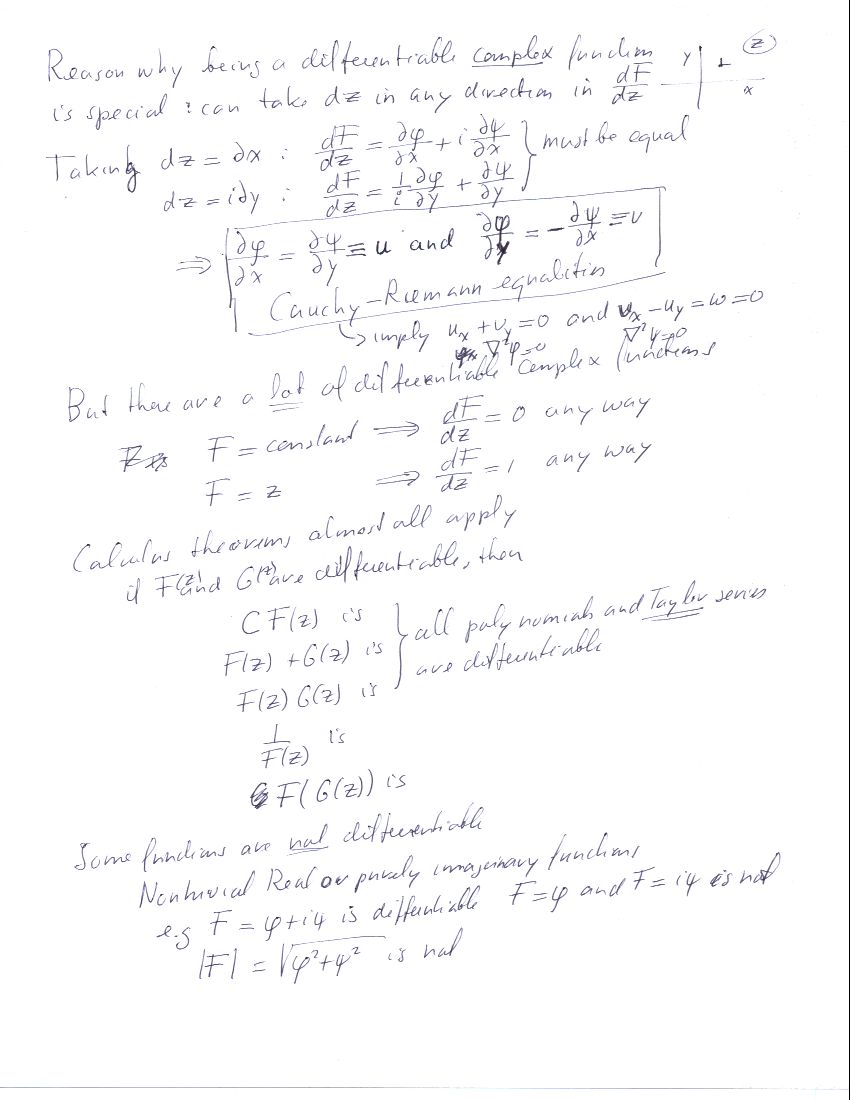 Reason why being a differentiable complex function
is special : can take dz in any direction in dF/dz
y
x
z
Taking dz = ∂x : dF/dz = ∂φ/∂x + i ∂ψ/∂x } must be equal
dz = i∂y : dF/dz = 1/i ∂φ/∂y + ∂ψ/∂y
⇒ ∂φ/∂x = ∂ψ/∂y ≡ u and ∂φ/∂y = -∂ψ/∂x ≡ v
Cauchy-Riemann equalities
↳ imply u_x + v_y = 0 and v_x - u_y = ω = 0
∇²φ=0 ∇²ψ=0
But there are a lot of differentiable complex functions
F = constant ⇒ dF/dz = 0 any way
F = z ⇒ dF/dz = 1 any way
Calculus theorems almost all apply
if F(z) and G(z) are differentiable, then
C F(z) is
F(z) + G(z) is } all polynomials and Taylor series
F(z) G(z) is are differentiable
1/F(z) is
F(G(z)) is
Some functions are not differentiable
Nontrivial Real or purely imaginary functions
e.g F = φ+iψ is differentiable F=φ and F=iψ is not
|F| = √φ²+ψ² is not